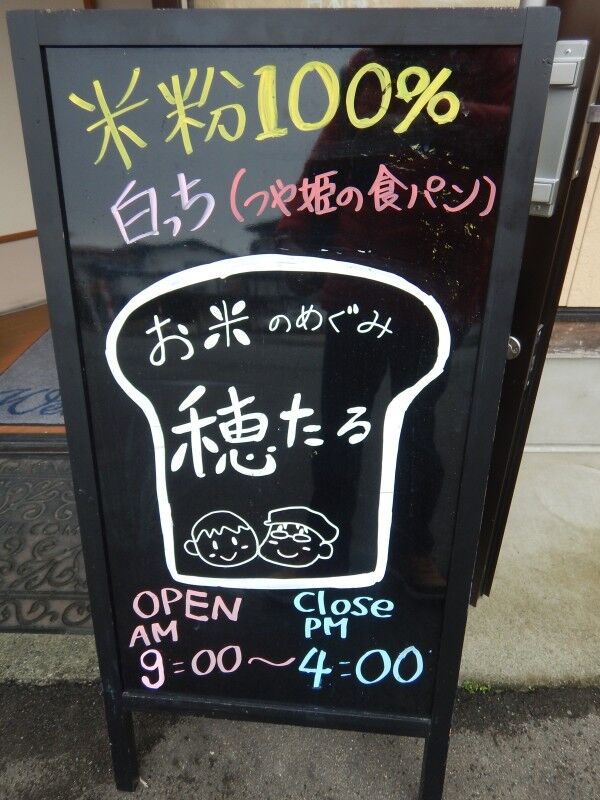 米粉100%
白っち(つや姫の食パン)
お米のめぐみ
穂たる
OPEN Close
AM PM
9:00〜4:00